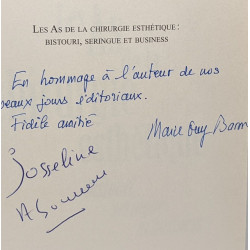 LES AS DE LA CHIRURGIE ESTHÉTIQUE :
BISTOURI, SERINGUE ET BUSINESS
En hommage à l'auteur de nos
beaux jours éditoriaux.
Fidèle amitié
Marie Guy
Josseline